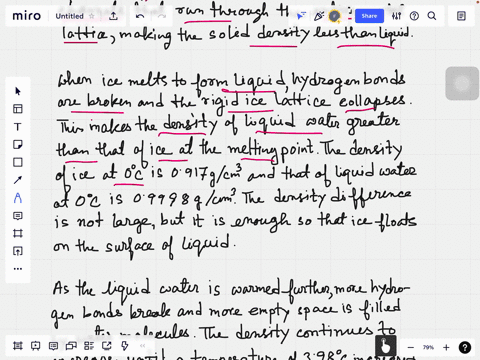 miro Untitled Share
run through the
lattice, making the solid density less than liquid.
when ice melts to form liquid, hydrogen bonds
are broken and the rigid ice lattice collapses.
This makes the density of liquid water greater
than that of ice at the melting point. The density
of ice at 0°C is 0.917g/cm³ and that of liquid water
at 0°C is 0.9998g/cm³. The density difference
is not large, but it is enough so that ice floats
on the surface of liquid.
As the liquid water is warmed further, more hydro-
gen bonds break and more empty space is filled
molecules. The density continues to
until a temperature of 3.98°C
79%